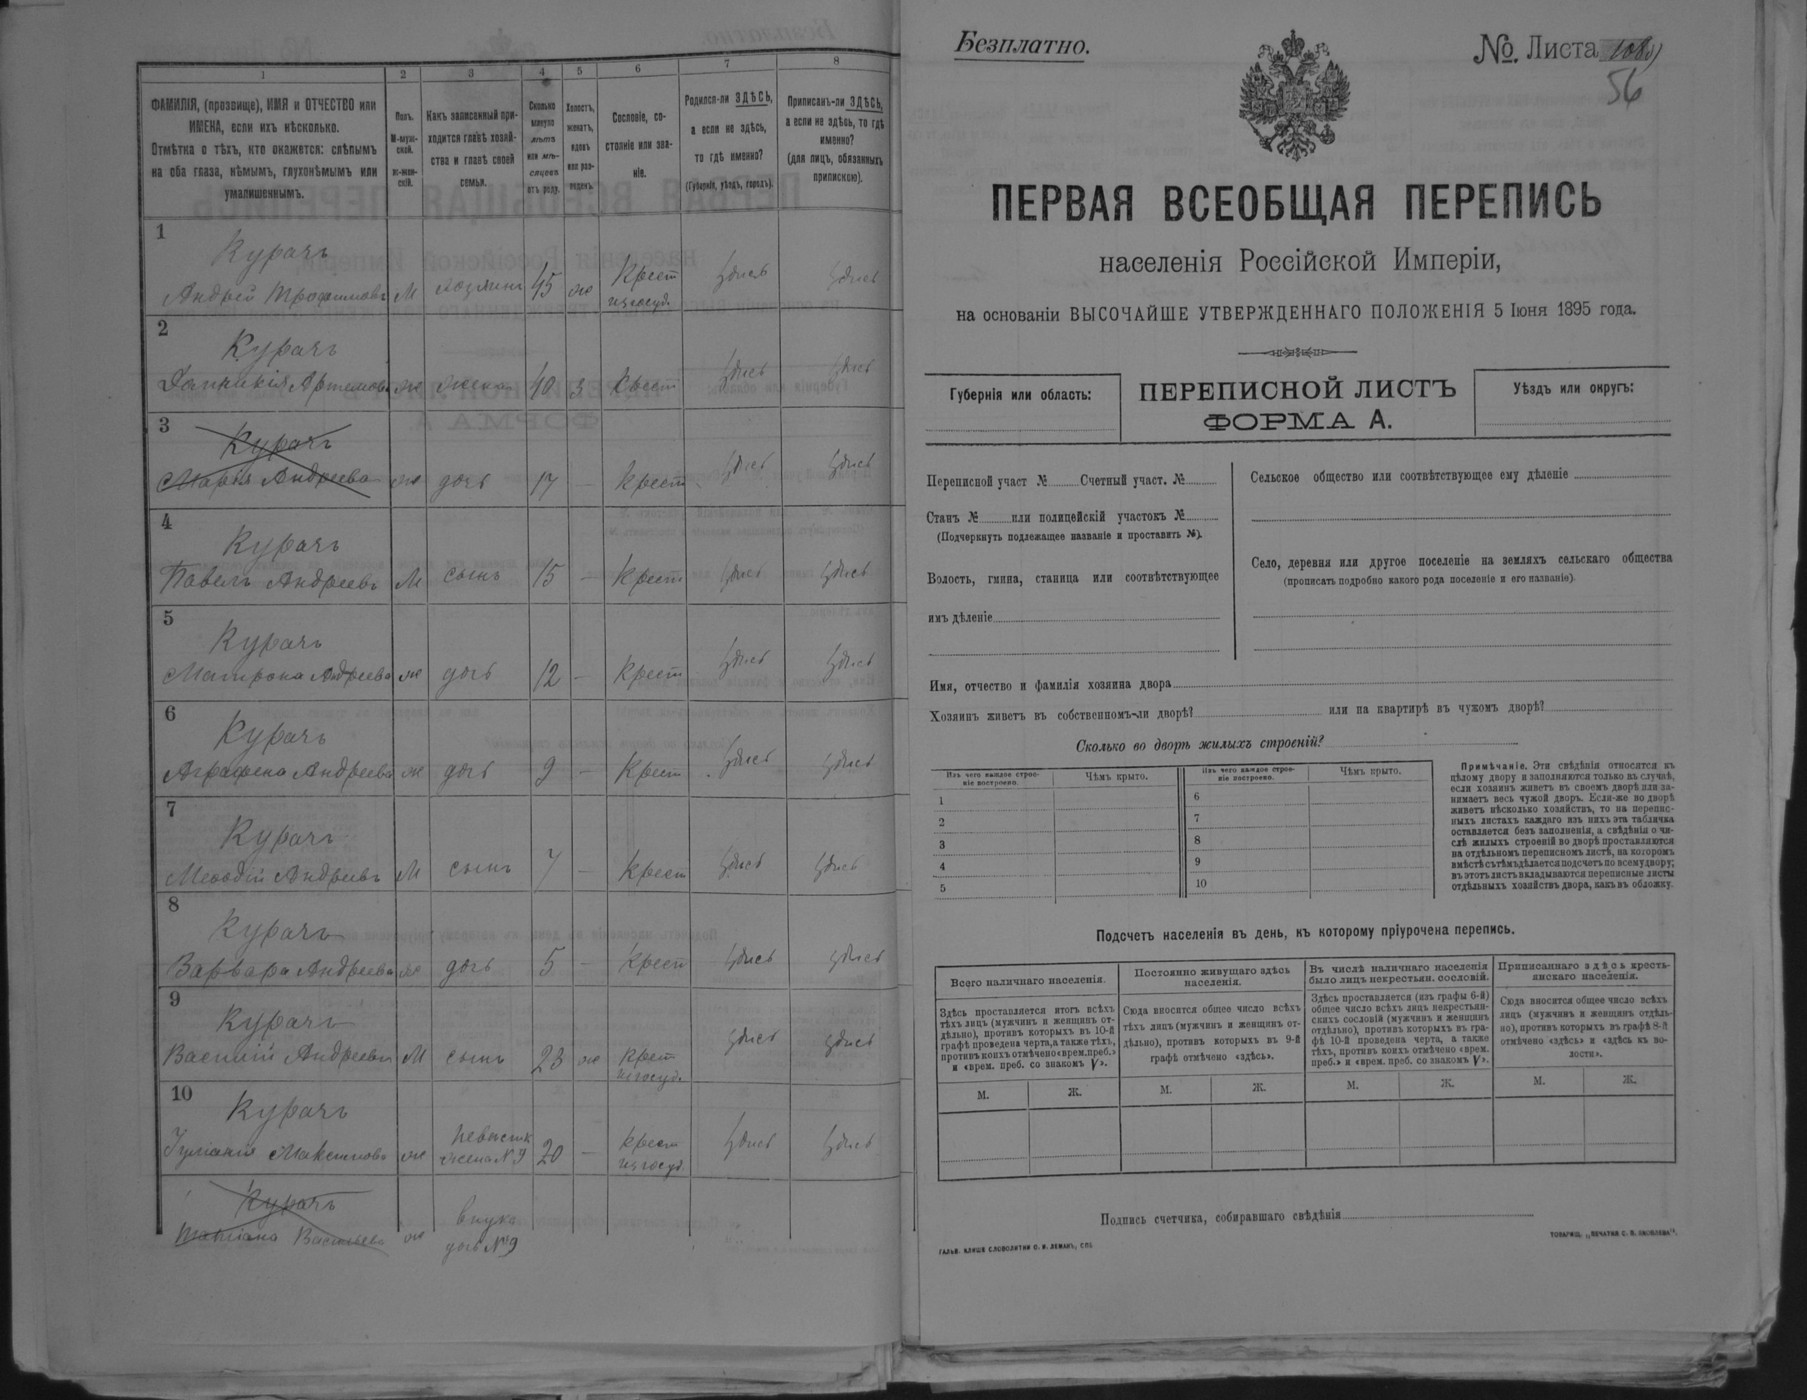 1
2
3
4
5
6
7
8
ФАМИЛІЯ, (прозвище), ИМЯ и ОТЧЕСТВО или
ИМЕНА, если ихъ нѣсколько.
Отмѣтка о тѣхъ, кто окажется: слѣпымъ
на оба глаза, нѣмымъ, глухонѣмымъ или
умалишеннымъ.
Полъ.
М-муж-
ской.
Ж-жен-
скій.
Какъ записанный при-
ходится главѣ хозяй-
ства и главѣ своей
семьи.
Сколько
минуло
лѣтъ
или мѣ-
сяцевъ
отъ роду.
Холостъ,
женатъ,
вдовъ
или раз-
веденъ.
Сословіе, со-
стояніе или зва-
ніе.
Родился-ли ЗДѢСЬ,
а если не здѣсь,
то гдѣ именно?
(Губернія, уѣздъ, городъ).
Приписанъ-ли ЗДѢСЬ,
а если не здѣсь, то гдѣ
именно?
(для лицъ, обязанныхъ
припискою).
1
Курачъ
Андрей Трофимовъ М хозяинъ 45 ж Крест изъ госуд. здѣсь здѣсь
2
Курачъ
Артемова ж жена 40 з Крест здѣсь здѣсь
3
Курачъ
Марія Андреева ж дочь 17 – Крест здѣсь здѣсь
4
Курачъ
Павелъ Андреевъ М сынъ 15 – Крест здѣсь здѣсь
5
Курачъ
Матрона Андреева ж дочь 12 – Крест здѣсь здѣсь
6
Курачъ
Аграфена Андреева ж дочь 9 – Крест здѣсь здѣсь
7
Курачъ
Меѳодій Андреевъ М сынъ 7 – Крест здѣсь здѣсь
8
Курачъ
Варвара Андреева ж дочь 5 – Крест здѣсь здѣсь
9
Курачъ
Василій Андреевъ М сынъ 23 ж Крест изъ госуд. здѣсь здѣсь
10
Курачъ
Максимова ж невѣстк жена №9 20 – Крест изъ госуд. здѣсь здѣсь
Курачъ
Татіана Васильева ж внука
дочь №9
Безплатно.
№. Листа
56
ПЕРВАЯ ВСЕОБЩАЯ ПЕРЕПИСЬ
населенія Россійской Имперіи,
на основаніи ВЫСОЧАЙШЕ УТВЕРЖДЕННАГО ПОЛОЖЕНІЯ 5 Іюня 1895 года.
Губернія или область:
ПЕРЕПИСНОЙ ЛИСТЪ
ФОРМА А.
Уѣздъ или округъ:
Переписной участ № Счетный участ. №
Станъ № или полицейскій участокъ №
(Подчеркнуть подлежащее названіе и проставить №).
Волость, гмина, станица или соотвѣтствующее
имъ дѣленіе
Сельское общество или соотвѣтствующее ему дѣленіе
Село, деревня или другое поселеніе на земляхъ сельскаго общества
(прописать подробно какого рода поселеніе и его названіе)
Имя, отчество и фамилія хозяина двора
Хозяинъ живетъ въ собственномъ-ли дворѣ? или на квартирѣ въ чужомъ дворѣ?
Сколько во дворѣ жилыхъ строеній?
Изъ чего каждое строе-
ніе построено.
Чѣмъ крыто.
Изъ чего каждое строе-
ніе построено.
Чѣмъ крыто.
1
2
3
4
5
6
7
8
9
10
Примѣчаніе. Эти свѣдѣнія относятся къ
цѣлому двору и заполняются только въ случаѣ,
если хозяинъ живетъ въ своемъ дворѣ или за-
нимаетъ весь чужой дворъ. Если-же во дворѣ
живетъ нѣсколько хозяйствъ, то на перепис-
ныхъ листахъ каждаго изъ нихъ эта табличка
оставляется безъ заполненія, а свѣдѣнія о чи-
слѣ жилыхъ строеній во дворѣ проставляются
на отдѣльномъ переписномъ листѣ, на которомъ
вмѣстѣ съ тѣмъ дѣлается подсчетъ по всему двору;
въ этотъ листъ вкладываются переписные листы
отдѣльныхъ хозяйствъ двора, какъ въ обложку.
Подсчетъ населенія въ день, къ которому пріурочена перепись.
Всего наличнаго населенія.
Здѣсь проставляется итогъ всѣхъ
тѣхъ лицъ (мужчинъ и женщинъ от-
дѣльно), противъ которыхъ въ 10-й
графѣ проведена черта, а также тѣхъ,
противъ коихъ отмѣчено «врем. преб.»
и «врем. преб. со знакомъ V».
Постоянно живущаго здѣсь
населенія.
Сюда вносится общее число всѣхъ
тѣхъ лицъ (мужчинъ и женщинъ от-
дѣльно), противъ которыхъ въ 9-й
графѣ отмѣчено «здѣсь».
Въ числѣ наличнаго населенія
было лицъ некрестьян. сословій.
Здѣсь проставляется (изъ графы 6-й)
общее число всѣхъ лицъ некрестьян-
скихъ сословій (мужчинъ и женщинъ
отдѣльно), противъ которыхъ въ гра-
фѣ 10-й проведена черта, а также
тѣхъ, противъ коихъ отмѣчено «врем.
преб.» и «врем. преб. со знакомъ V».
Приписаннаго здѣсь кресть-
янскаго населенія.
Сюда вносится общее число всѣхъ
лицъ (мужчинъ и женщинъ отдѣль-
но), противъ которыхъ въ графѣ 8-й
отмѣчено «здѣсь» и «здѣсь къ во-
лости».
М. Ж. М. Ж. М. Ж. М. Ж.
Подпись счетчика, собиравшаго свѣдѣнія
ГАЛЬВ. КЛИШЕ СЛОВОЛИТНИ О. И. ЛЕМАНЪ, СПБ
ТОВАРИЩ. „ПЕЧАТНЯ С. П. ЯКОВЛЕВА“.